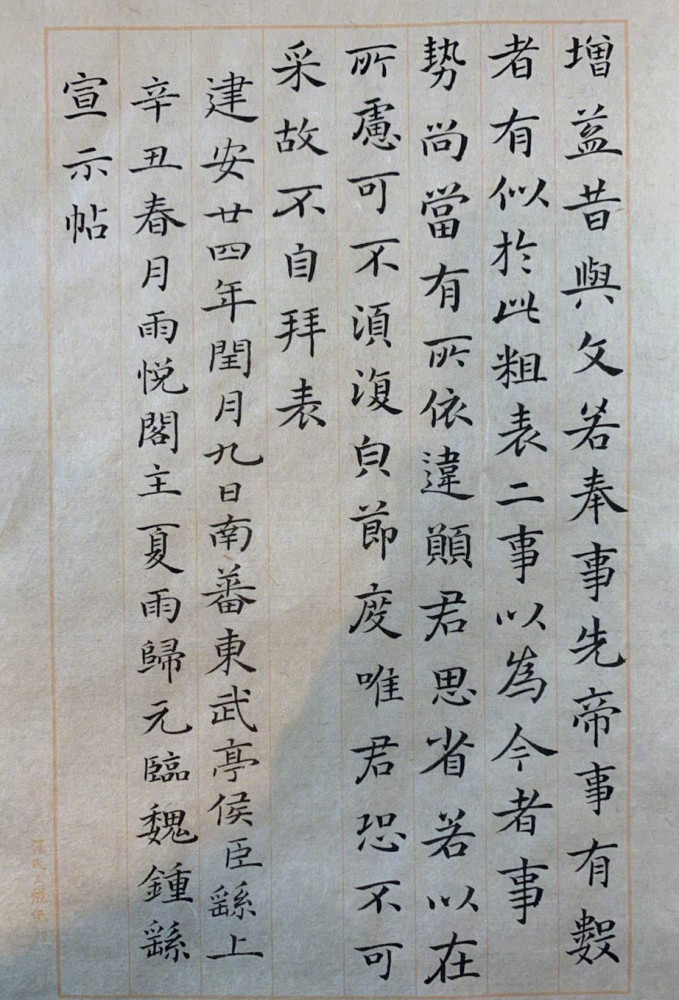 增益昔與文若奉事先帝事有數
者有似於此粗表二事以為今者事
勢尚當有所依違願君思省若以在
所慮可不須復皃節度唯君恐不可
采故不自拜表
建安廿四年閏月九日南蕃東武亭侯臣繇上
辛丑春月雨悦閣主夏雨歸元臨魏鍾繇
宣示帖